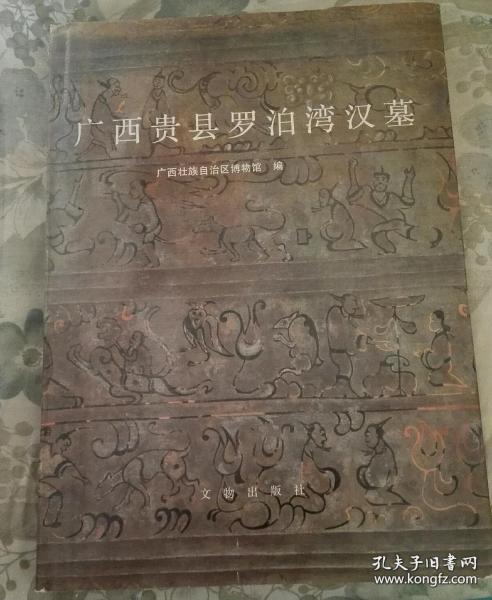 广西贵县罗泊湾汉墓
广西壮族自治区博物馆 编
文物出版社
孔夫子旧书网
www.kongfz.com